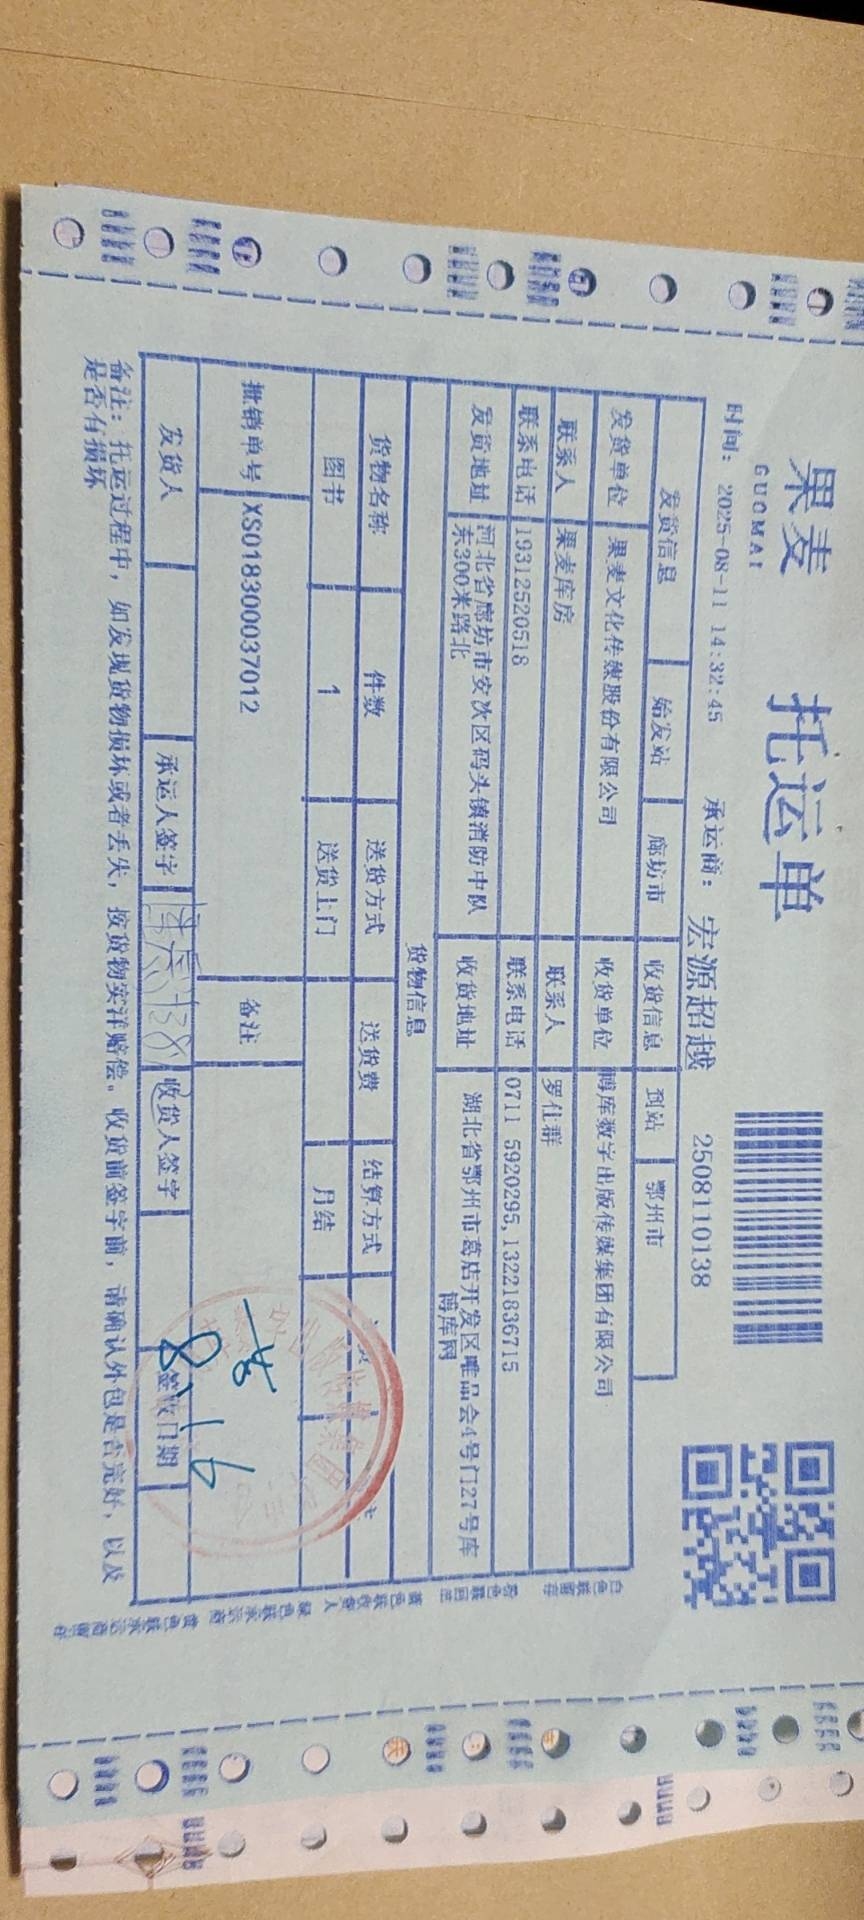 果麦
GUOMAI
托运单
时间：2025-08-11 14:32:45 承运商：宏源超越 2508110138
发货信息 始发站 廊坊市 收货信息 到站 鄂州市
发货单位 果麦文化传媒股份有限公司 收货单位 博库数字出版传媒集团有限公司
联系人 果麦库房 联系人 罗仕群
联系电话 19312520518 联系电话 0711 5920295,13221836715
发货地址 河北省廊坊市安次区码头镇消防中队
东300米路北 收货地址 湖北省鄂州市葛店开发区唯品会4号门27号库
博库网
货物信息
货物名称 件数 送货方式 送货费 结算方式
图书 1 送货上门 月结
批销单号 XS018300037012 备注
发货人 承运人签字 收货人签字 签收日期
8.16
备注：托运过程中，如发现货物损坏或者丢失，按货物实洋赔偿。收货前签字前，请确认外包是否完好，以及
是否有损坏
白色联留存
粉色联回签
蓝色联收货人
绿色联承运商
黄色联承运商留存